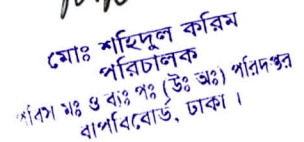 মোঃ শহিদুল করিম
পরিচালক
মঃ ও ব্যঃ পঃ (উঃ অঃ) পরিদপ্তর
বাপবিবোর্ড, ঢাকা ।